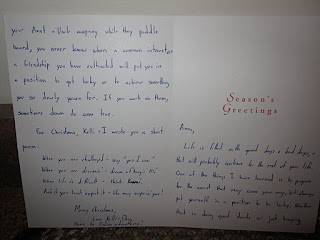 your Aunt + Uncle camping while they paddle
board, you never know when a common interest or
a friendship you have cultivated will put you in
a position to get lucky or to achieve something
you so dearly yearn for. If you work on them,
sometimes dreams do come true.
For Christmas, Kelli + I wrote you a short
poem:
When you are challenged - say "yes I can"
When you are
When life is difficult - think
And if you least expect it - life may surprise you!
Merry Christmas,
Love Kelli +
Season's
Greetings
Life is filled with good days + bad days, +
that will probably continue for the rest of your life.
One of the things I have learned is to prepare
for the worst that may come your way, but always
put yourself in a position to be lucky. Whether
that is doing good deeds or just keeping